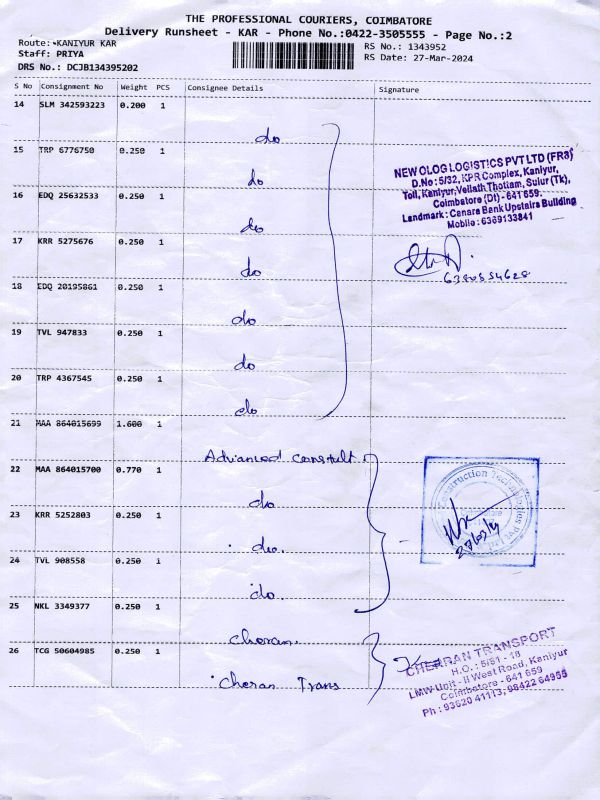 THE PROFESSIONAL COURIERS, COIMBATORE
Delivery Runsheet - KAR - Phone No.:0422-3505555 - Page No.:2
Route: KANIYUR KAR
RS No.: 1343952
Staff: PRIYA
RS Date: 27-Mar-2024
DRS No.: DCJB134395202
S No Consignment No Weight PCS Consignee Details Signature
14 SLM 342593223 0.200 1
do
15 TRP 6776750 0.250 1
do
16 EDQ 25632533 0.250 1
do
17 KRR 5275676 0.250 1
do
18 EDQ 20195861 0.250 1
do
19 TVL 947833 0.250 1
do
20 TRP 4367545 0.250 1
do
NEW OLOG LOGISTICS PVT LTD (FR8)
D.No: 5/32, KPR Complex, Kaniyur,
Toll, Kaniyur, Vellath Thottam, Sulur (Tk),
Coimbatore (Dt) - 641 659.
Landmark: Canara Bank Upstairs Building
Mobile: 6369133841
6380554628
21 MAA 864015699 1.600 1
Advanced Constult
22 MAA 864015700 0.770 1
do
23 KRR 5252803 0.250 1
do.
24 TVL 908558 0.250 1
do.
Construction Technologies Pvt
27/03/24
25 NKL 3349377 0.250 1
cheran.
26 TCG 50604985 0.250 1
Cheran Trans
CHERRAN TRANSPORT
H.O.: 5/81 - 18
LMW Unit - II West Road, Kaniyur
Coimbatore - 641 659
Ph: 93620 41113, 98422 64955